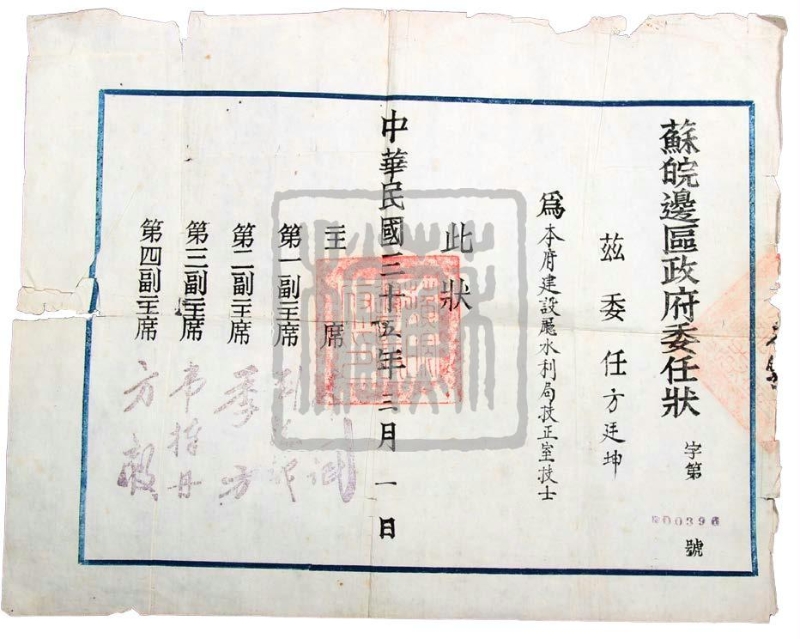 蘇皖邊區政府委任狀
字第
000396
號
茲委任方廷坤
爲本府建設廳水利局技正室技士
此狀
中華民國三十五年三月一日
主席
第一副主席
第二副主席 季方
第三副主席 韋悫丹
第四副主席 方毅